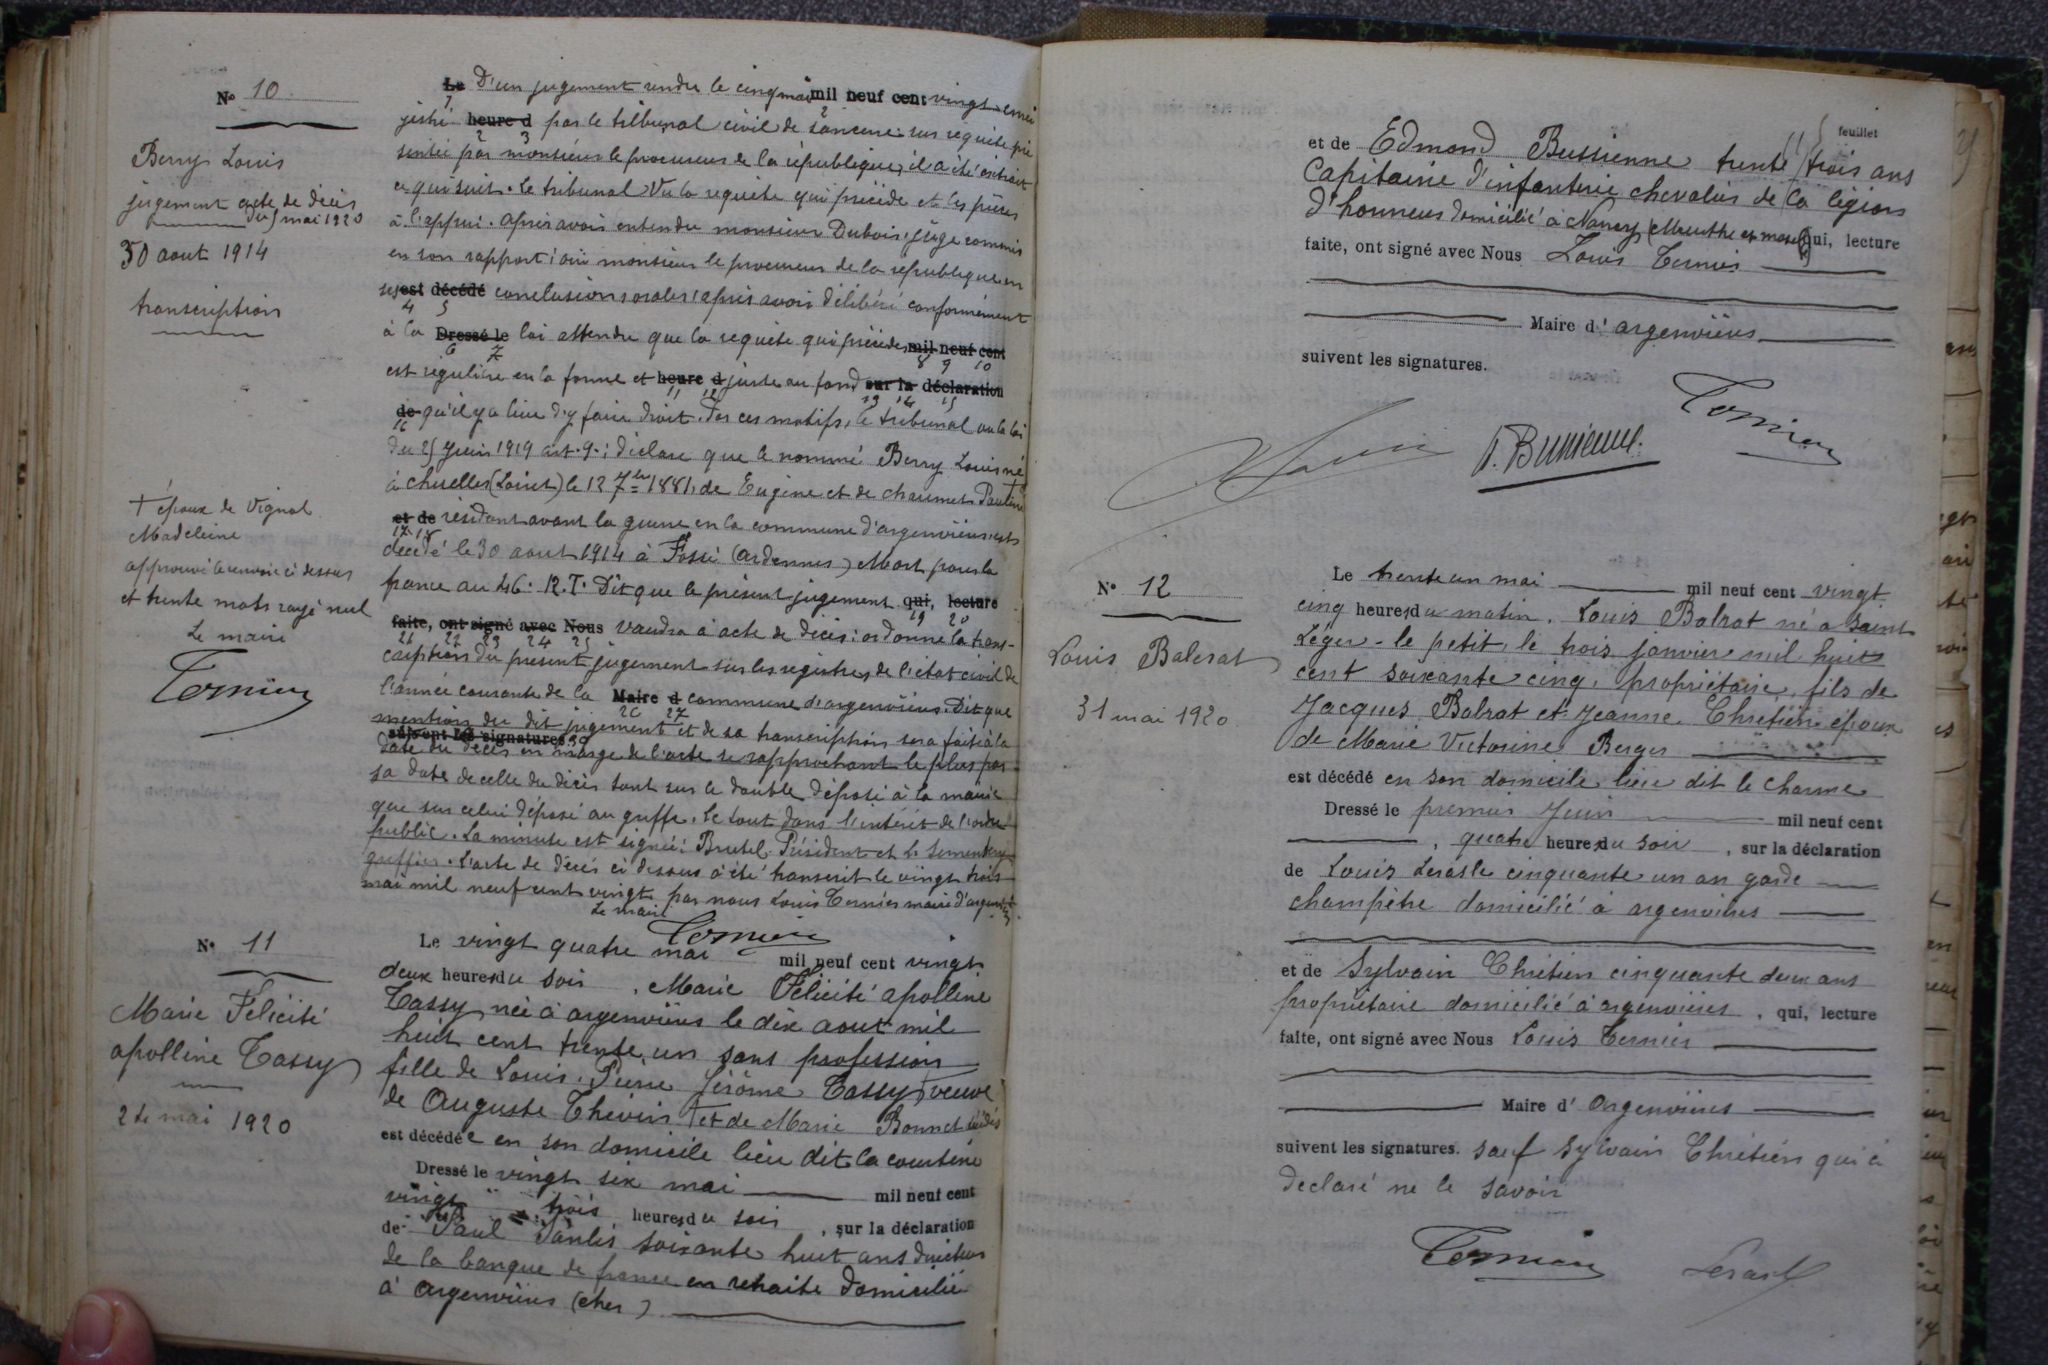 N° 10
Berry Louis
jugement acte de décès
du 5 mai 1920
30 aout 1914
transcription
+ époux de Vignal
Madeleine
approuvé le renvoi ci dessus
et trente mots rayé nul
Le maire
Ternier
Le D'un jugement rendu le cinq mai mil neuf cent vingt enre
gistré heure d par le tribunal civil de Sancerre sur requête pré
sentée par monsieur le procureur de la république, il a été extrait
ce qui suit. Le tribunal Vu la requête qui précède et les pièces
à l'appui. après avoir entendu monsieur Dubois, juge commis
en son rapport; oui monsieur le procureur de la république en
ses est décédé conclusions orales; après avoir délibéré conformément
à la Dressé le loi attendu que la requête qui précède mil neuf cent
est régulière en la forme et heure d juste au fond sur la déclaration
de qu'il y a lieu d'y faire droit. Par ces motifs, le tribunal vu la loi
du 25 Juin 1919 art. 9.; déclare que le nommé Berry Louis né
à chuelles (Loiret) le 12 7bre 1881, de Eugène et de chaumet Pauline
et de résidant avant la guerre en la commune d'argenvières, est
décédé le 30 aout 1914 à Fossé (ardennes) Mort pour la
france au 46e R.I. Dit que le présent jugement qui, lecture
faite, ont signé avec Nous vaudra à acte de décès: ordonne la trans-
cription du présent jugement sur les registres de l'état civil de
l'année courante de la Maire d commune d'argenvières. Dit que
mention du dit jugement et de sa transcription sera faite à la
suivent les signatures
date du décès en marge de l'acte se rapprochant le plus par
sa date de celle du décès tant sur le double déposé à la mairie
que sur celui déposé au greffe. Le tout dans l'intérêt de l'ordre
public. La minute est signée: Brutel Président et L.
greffier. L'acte de décès ci dessus a été transcrit le vingt trois
mai mil neuf cent vingt par nous Louis Ternier maire d'argenvières
Le maire
Ternier
N° 11
Marie Félicité
apolline Tassy
24 mai 1920
Le vingt quatre mai mil neuf cent vingt
deux heures du soir, Marie Félicité apolline
Tassy née à argenvières le dix aout mil
huit cent trente un sans profession
fille de Louis Pierre Jérôme Tassy, veuve
de Auguste Thévin et de Marie Bonnet décédés
est décédée en son domicile lieu dit la courtine
Dressé le vingt six mai mil neuf cent
vingt, trois heures du soir, sur la déclaration
de Paul Sanlis soixante huit ans directeur
de la banque de france en retraite domicilié
à argenvières (cher)
feuillet
et de Edmond Bussienne trente trois ans
Capitaine d'infanterie chevalier de la légion
d'honneur domicilié à Nancy (Meurthe et moselle) qui, lecture
faite, ont signé avec Nous Louis Ternier
Maire d'argenvières
suivent les signatures.
Ternier
N° 12
Louis Balerat
31 mai 1920
Le trente un mai mil neuf cent vingt
cinq heures du matin, Louis Balrat né à Saint
Léger-le petit, le trois janvier mil huit
cent soixante cinq, propriétaire, fils de
Jacques Balrat et Jeanne Chrétien époux
de Marie Victorine Berger
est décédé en son domicile lieu dit le charme
Dressé le premier Juin mil neuf cent
, quatre heures du soir, sur la déclaration
de Louis Lerasle cinquante un an garde
champêtre domicilié à argenvières
et de Sylvain Chrétien cinquante deux ans
propriétaire domicilié à argenvières, qui, lecture
faite, ont signé avec Nous Louis Ternier
Maire d'argenvières
suivent les signatures. sauf Sylvain Chrétien qui a
declaré ne le savoir
Ternier Lerasle